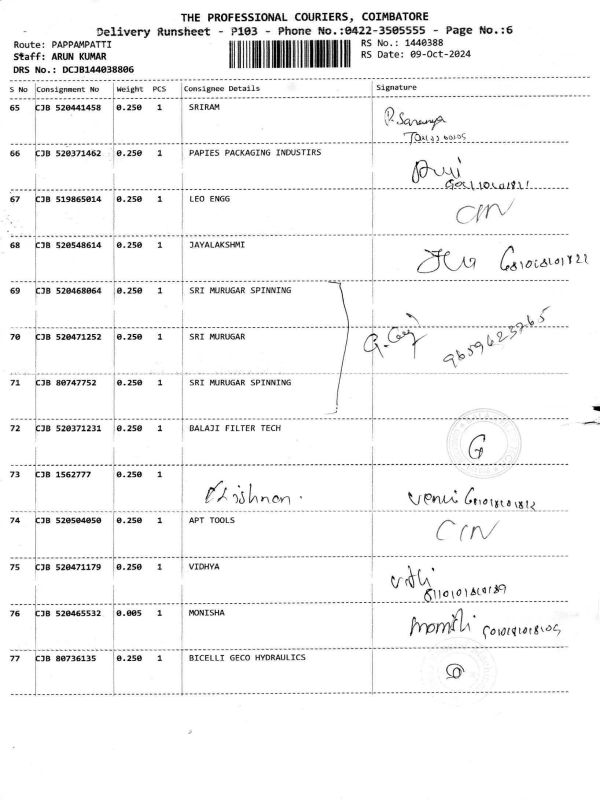 THE PROFESSIONAL COURIERS, COIMBATORE
Delivery Runsheet - P103 - Phone No.:0422-3505555 - Page No.:6
Route: PAPPAMPATTI RS No.: 1440388
Staff: ARUN KUMAR RS Date: 09-Oct-2024
DRS No.: DCJB144038806
S No Consignment No Weight PCS Consignee Details Signature
65 CJB 520441458 0.250 1 SRIRAM
66 CJB 520371462 0.250 1 PAPIES PACKAGING INDUSTIRS
67 CJB 519865014 0.250 1 LEO ENGG
68 CJB 520548614 0.250 1 JAYALAKSHMI
69 CJB 520468064 0.250 1 SRI MURUGAR SPINNING
70 CJB 520471252 0.250 1 SRI MURUGAR 9659623765
71 CJB 80747752 0.250 1 SRI MURUGAR SPINNING
72 CJB 520371231 0.250 1 BALAJI FILTER TECH G
73 CJB 1562777 0.250 1
74 CJB 520504050 0.250 1 APT TOOLS
75 CJB 520471179 0.250 1 VIDHYA
76 CJB 520465532 0.005 1 MONISHA
77 CJB 80736135 0.250 1 BICELLI GECO HYDRAULICS